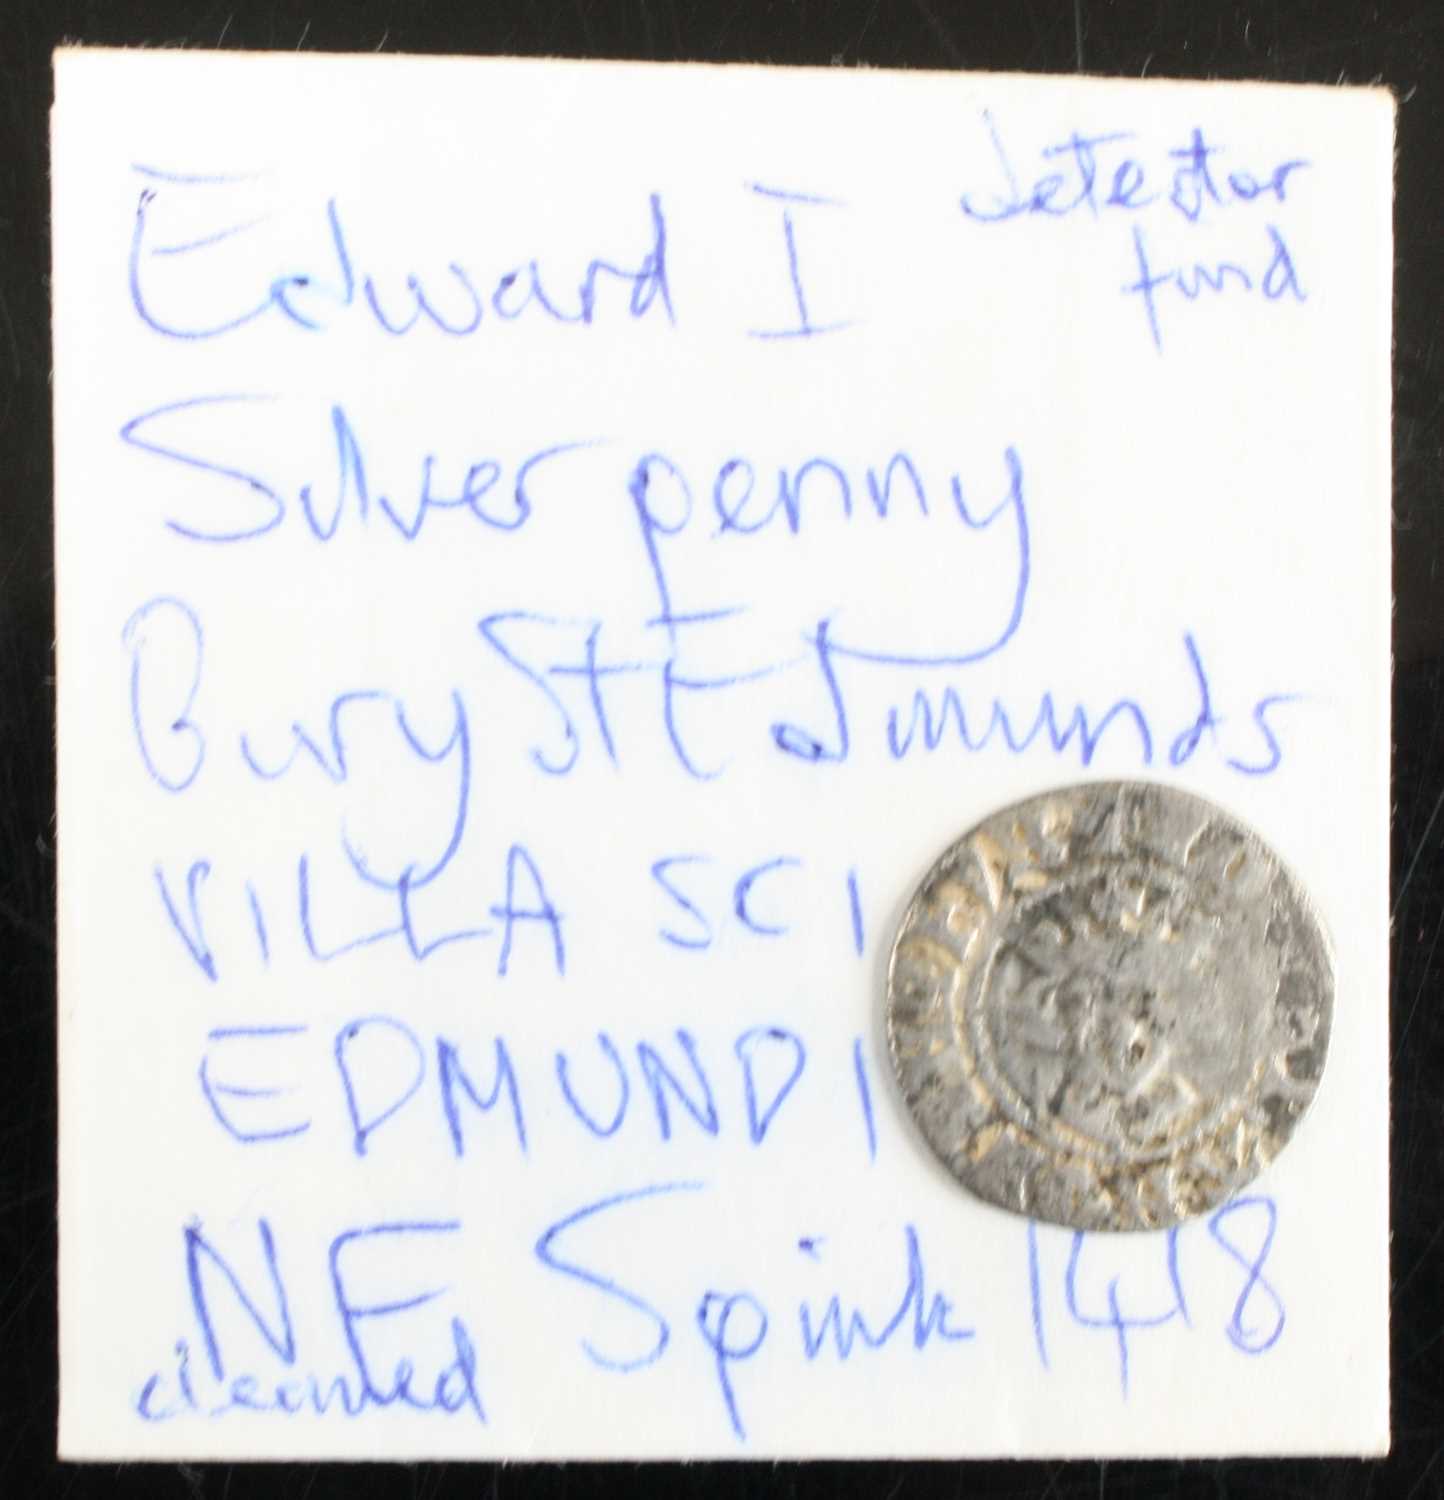 Edward I
detector
find
Silver penny
Bury St Edmunds
VILLA SCI
EDMUNDI
NF Spink 1418
cleaned